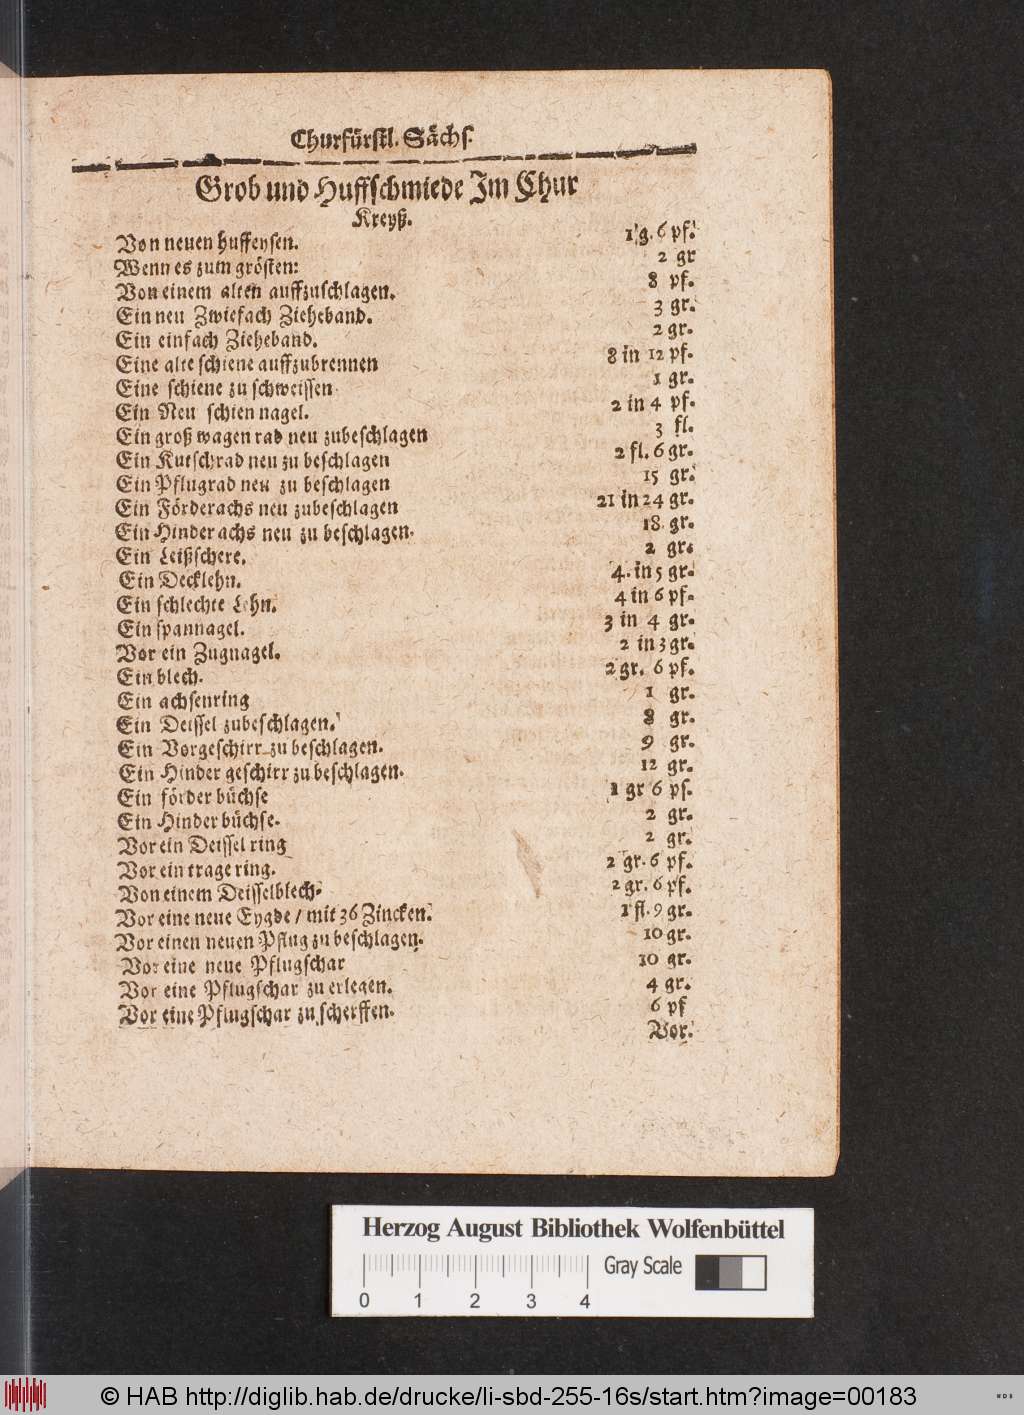 Churfürstl. Sächs.
Grob und Huffschmiede Im Chur
Kreyß.
Von neuen huffeysen. 1 g. 6 pf.
Wenn es zum grösten: 2 gr
Von einem alten auffzuschlagen. 8 pf.
Ein neu Zwiefach Zieheband. 3 gr.
Ein einfach Zieheband. 2 gr.
Eine alte schiene auffzubrennen 8 in 12 pf.
Eine schiene zu schweissen 1 gr.
Ein Neu schien nagel. 2 in 4 pf.
Ein groß wagen rad neu zubeschlagen 3 fl.
Ein Kutschrad neu zu beschlagen 2 fl. 6 gr.
Ein Pflugrad neu zu beschlagen 15 gr.
Ein Förderachs neu zubeschlagen 21 in 24 gr.
Ein Hinder achs neu zu beschlagen. 18. gr.
Ein Leißschere. 2 gr.
Ein Decklehn. 4. in 5 gr.
Ein schlechte Lehn. 4 in 6 pf.
Ein spannagel. 3 in 4 gr.
Vor ein Zugnagel. 2 in 3 gr.
Ein blech. 2 gr. 6 pf.
Ein achsenring 1 gr.
Ein Deissel zubeschlagen. 8 gr.
Ein Vorgeschirr zu beschlagen. 9 gr.
Ein Hinder geschirr zu beschlagen. 12 gr.
Ein förder büchse 1 gr 6 pf.
Ein Hinder büchse. 2 gr.
Vor ein Deissel ring 2 gr.
Vor ein trage ring. 2 gr. 6 pf.
Von einem Deisselblech. 2 gr. 6 pf.
Vor eine neue Eygde / mit 36 Zincken. 1 fl. 9 gr.
Vor einen neuen Pflug zu beschlagen. 10 gr.
Vor eine neue Pflugschar 10 gr.
Vor eine Pflugschar zu erlegen. 4 gr.
Vor eine Pflugschar zu scherffen. 6 pf
Vor.
Herzog August Bibliothek Wolfenbüttel
Gray Scale
0 1 2 3 4
© HAB http://diglib.hab.de/drucke/li-sbd-255-16s/start.htm?image=00183
WDB